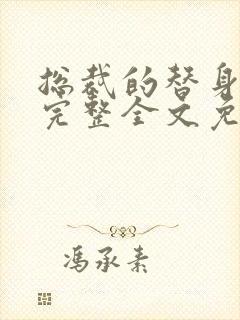 总裁的替身
完整全文免
冯承素